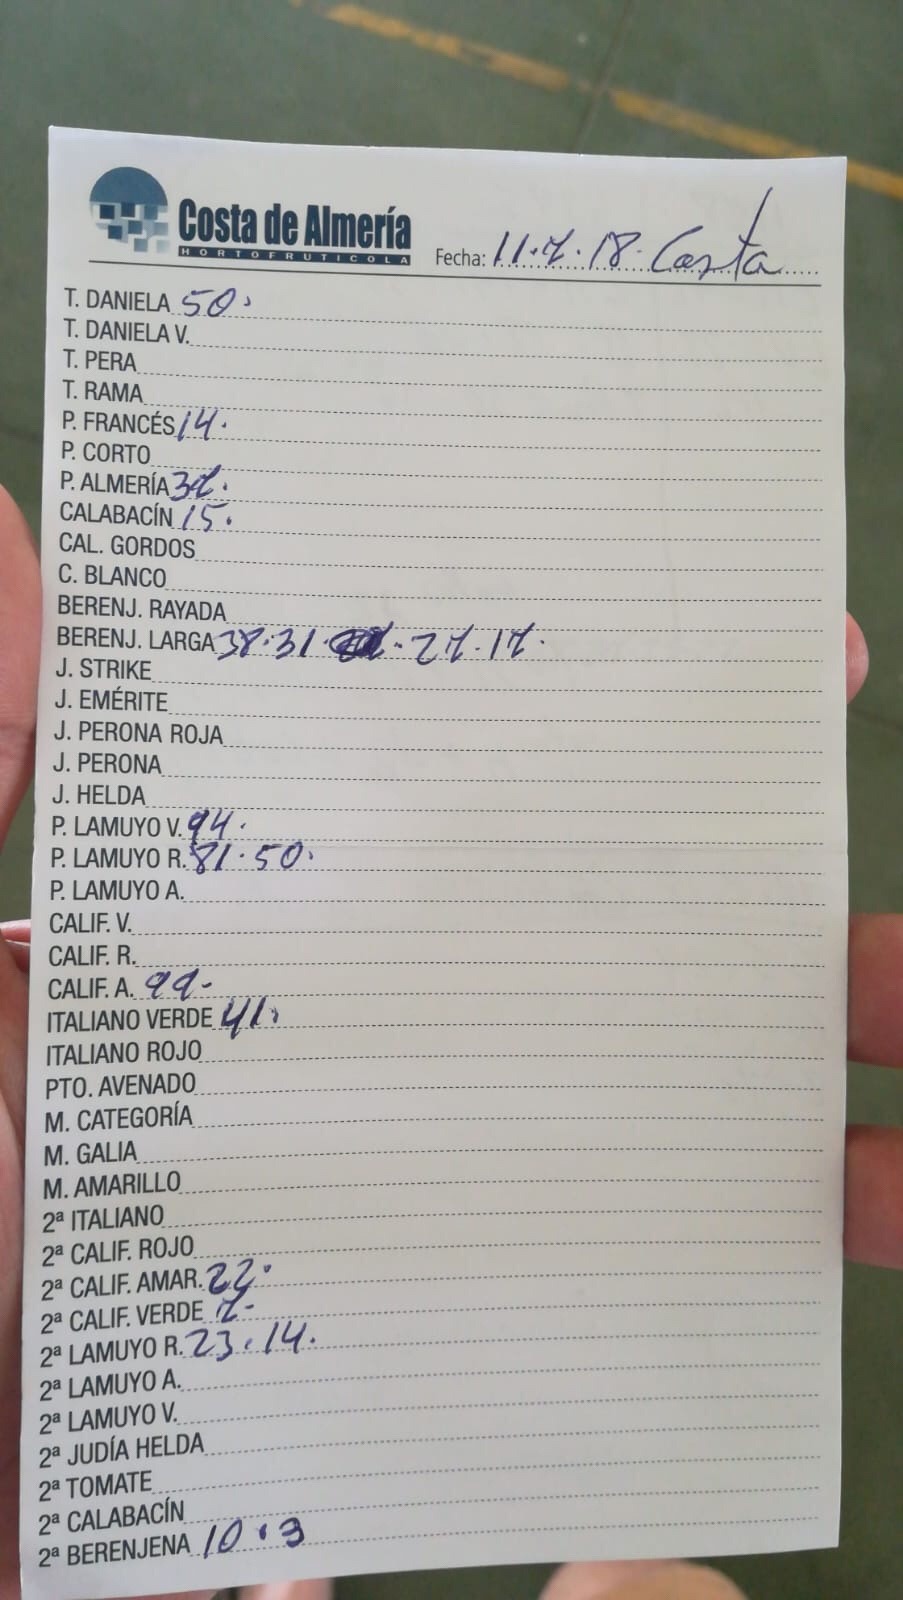 Costa de Almería
HORTOFRUTICOLA
Fecha: 11.7.18. Costa
T. DANIELA 50.
T. DANIELA V.
T. PERA
T. RAMA
P. FRANCÉS 14.
P. CORTO
P. ALMERÍA 37.
CALABACÍN 15.
CAL. GORDOS
C. BLANCO
BERENJ. RAYADA
BERENJ. LARGA 38.31. - 27.17.
J. STRIKE
J. EMÉRITE
J. PERONA ROJA
J. PERONA
J. HELDA
P. LAMUYO V. 94.
P. LAMUYO R. 81.50.
P. LAMUYO A.
CALIF. V.
CALIF. R.
CALIF. A. 99-
ITALIANO VERDE 41.
ITALIANO ROJO
PTO. AVENADO
M. CATEGORÍA
M. GALIA
M. AMARILLO
2ª ITALIANO
2ª CALIF. ROJO
2ª CALIF. AMAR. 22.
2ª CALIF. VERDE 7-
2ª LAMUYO R. 23.14.
2ª LAMUYO A.
2ª LAMUYO V.
2ª JUDÍA HELDA
2ª TOMATE
2ª CALABACÍN
2ª BERENJENA 10.3